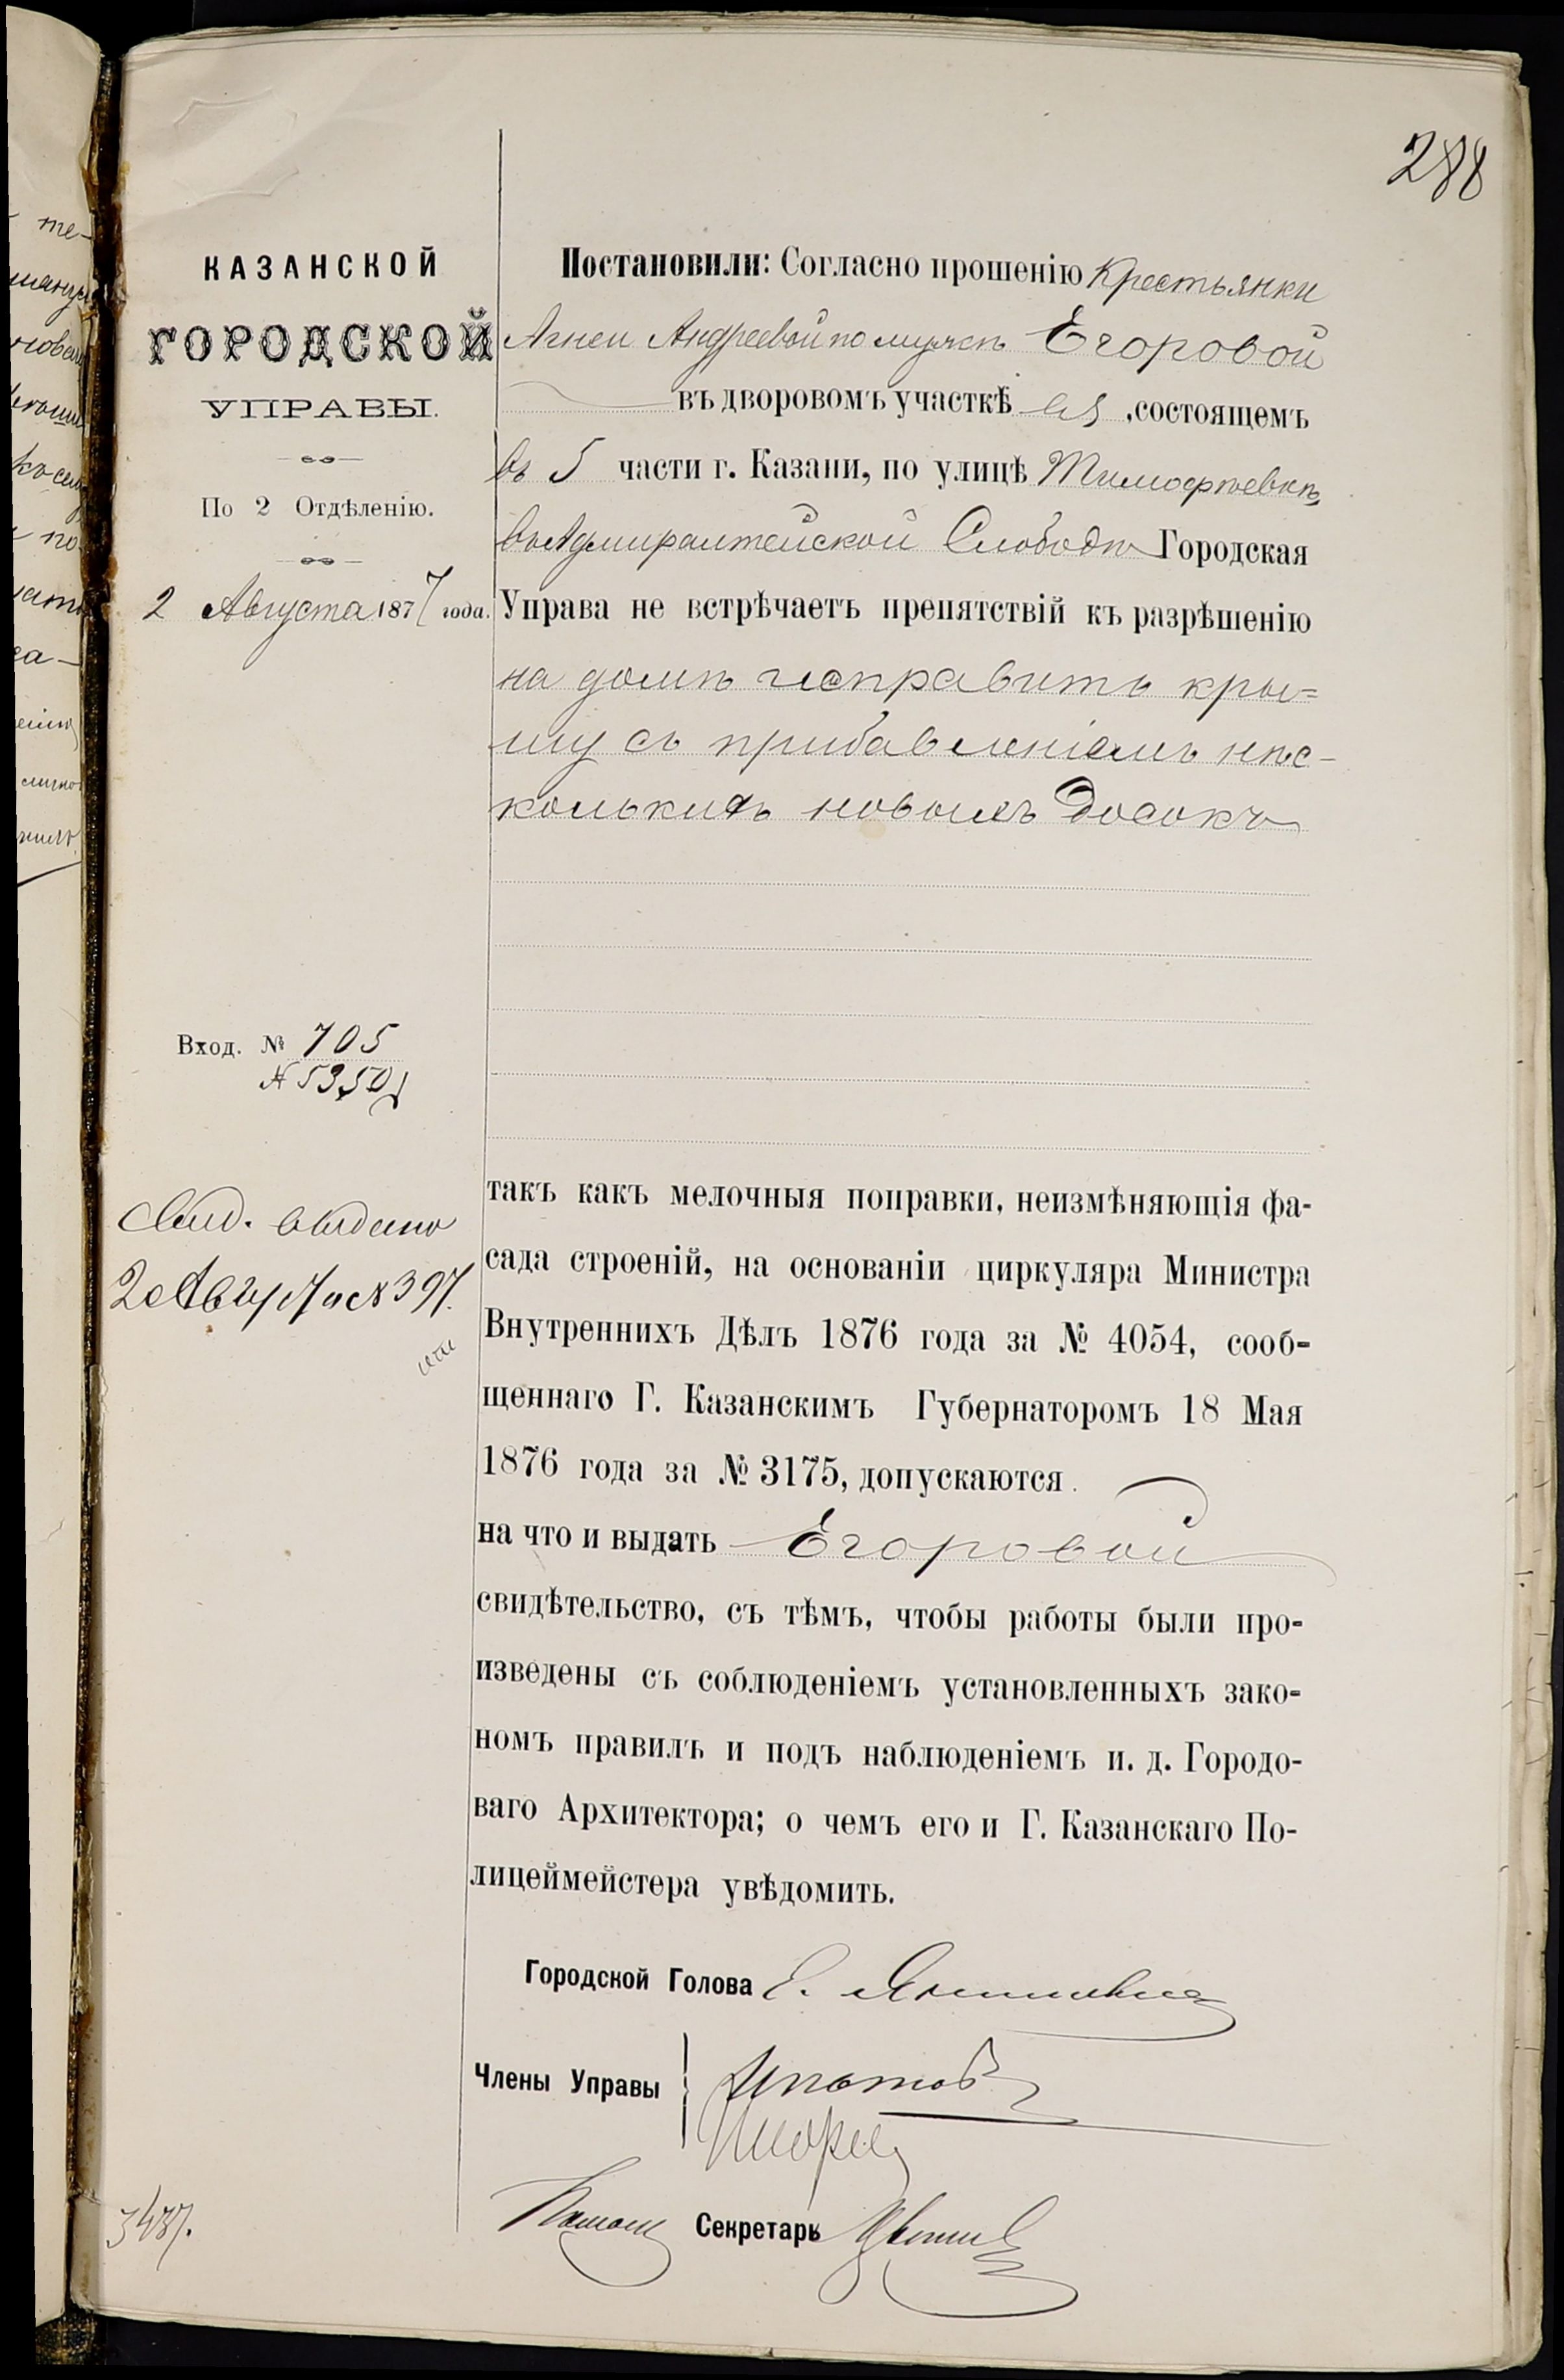 288
КАЗАНСКОЙ
ГОРОДСКОЙ
УПРАВЫ.
По 2 Отдѣленію.
2 Августа 1877 года.
Постановили: Согласно прошенію Крестьянки
Агнеи Андреевой по мужѣ Егоровой
въ дворовомъ участкѣ ея, состоящемъ
въ 5 части г. Казани, по улицѣ Тимофѣевкѣ,
въ Адмиралтейской Слободѣ Городская
Управа не встрѣчаетъ препятствій къ разрѣшенію
на домѣ исправить кры=
шу съ прибавленіемъ нѣс-
колькихъ новыхъ досокъ
Вход. № 705
№ 5350
Свид. выдано
2 Августа № 397.
такъ какъ мелочныя поправки, неизмѣняющія фа-
сада строеній, на основаніи циркуляра Министра
Внутреннихъ Дѣлъ 1876 года за № 4054, сооб-
щеннаго Г. Казанскимъ Губернаторомъ 18 Мая
1876 года за № 3175, допускаются.
на что и выдать Егоровой
свидѣтельство, съ тѣмъ, чтобы работы были про-
изведены съ соблюденіемъ установленныхъ зако-
номъ правилъ и подъ наблюденіемъ и. д. Городо-
ваго Архитектора; о чемъ его и Г. Казанскаго По-
лицеймейстера увѣдомить.
Городской Голова Е. Янишевск
Члены Управы Ипатов
Секретарь